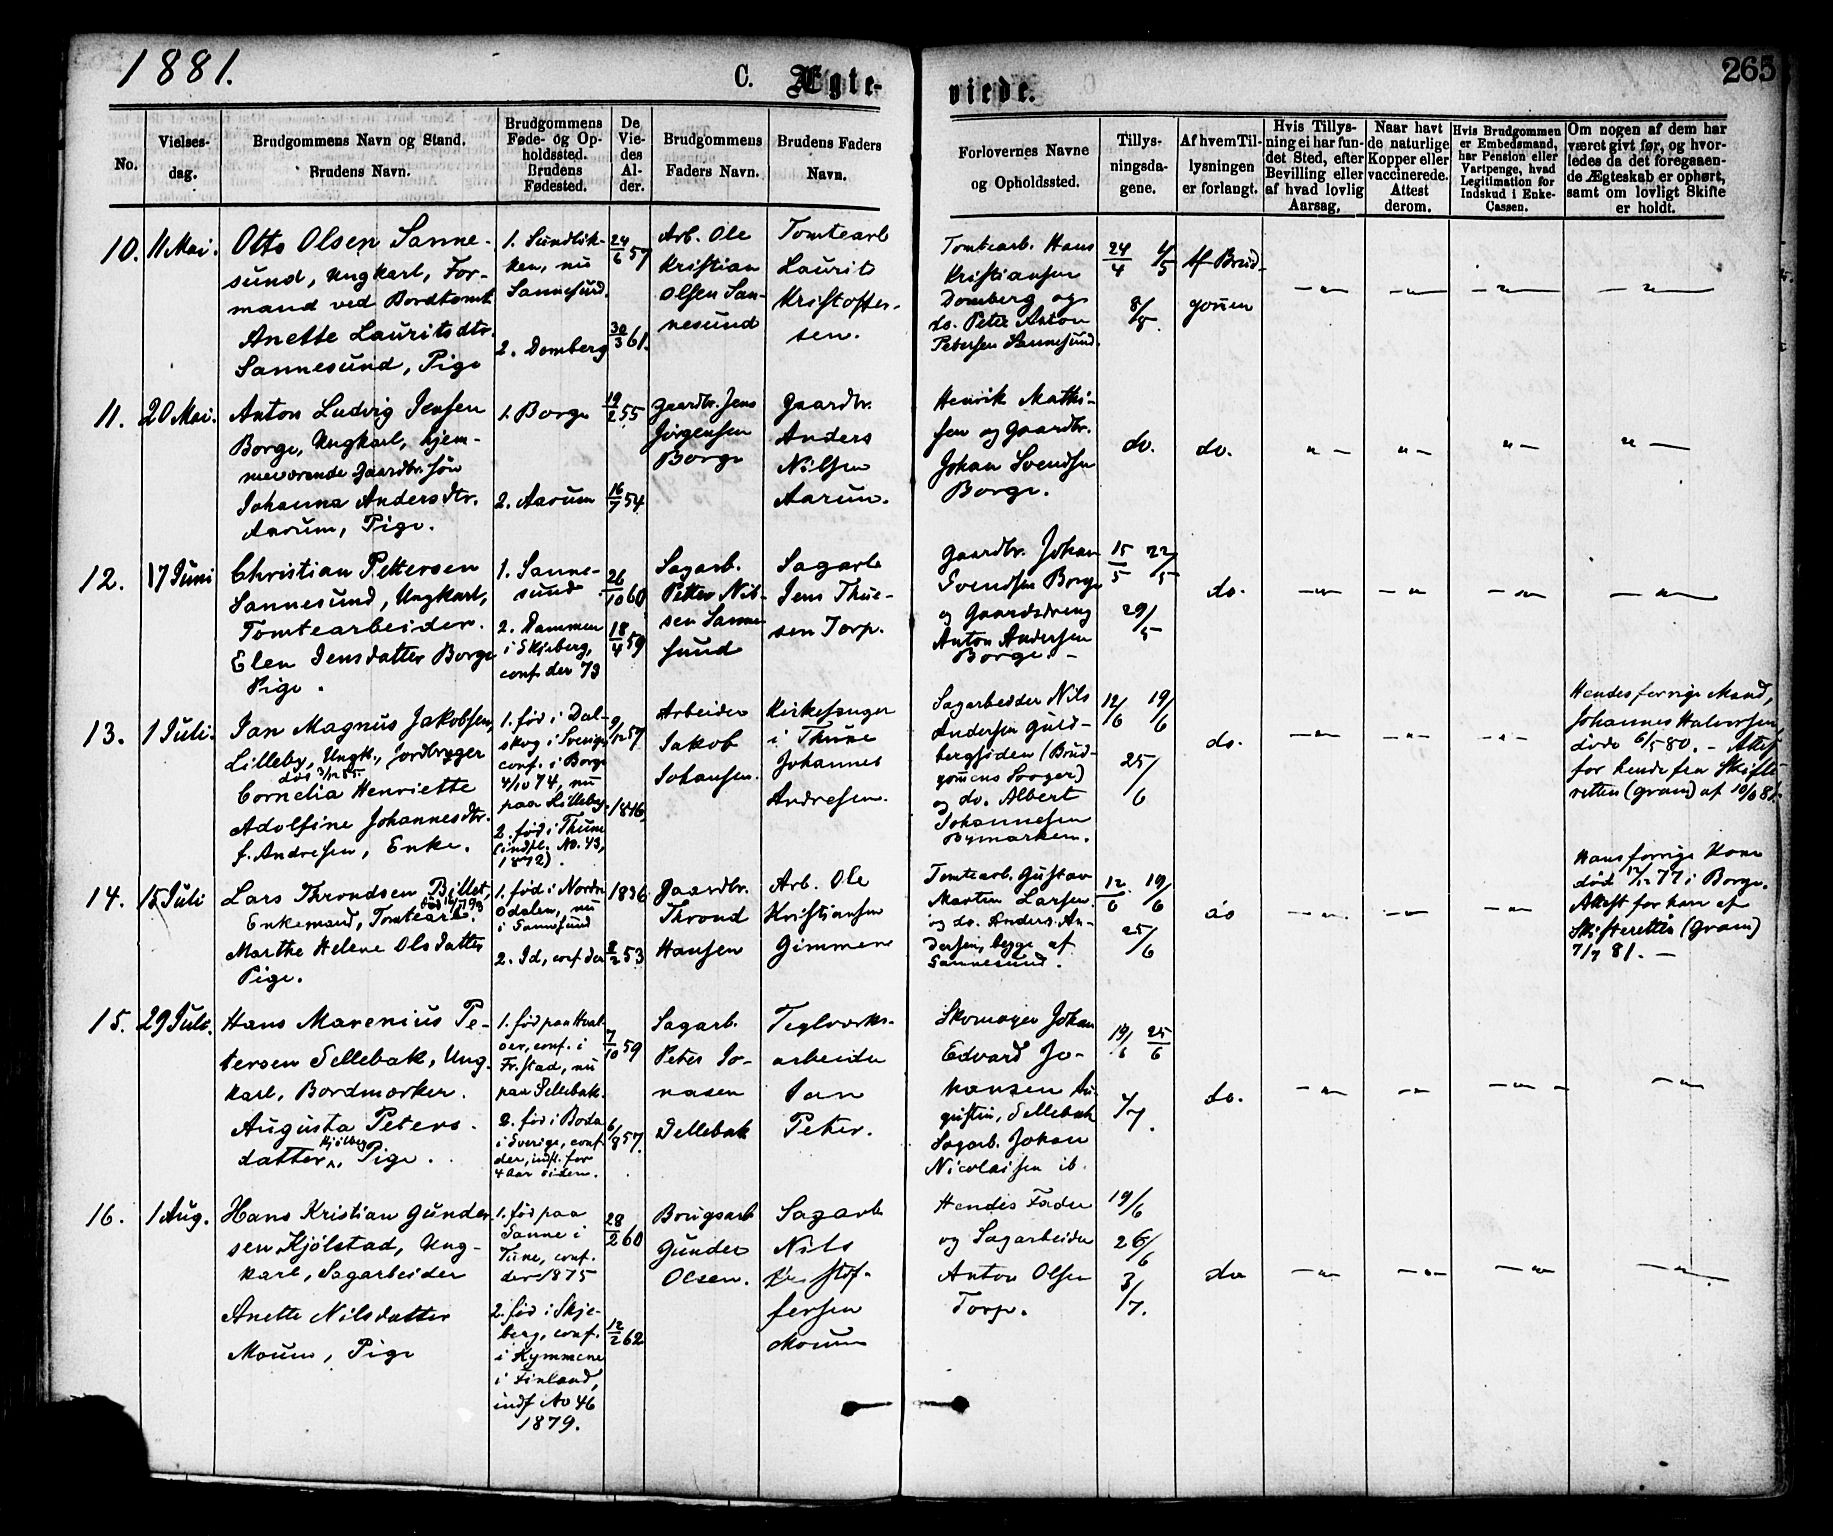 1881.
C. Ægte-
viede.
265
No.
Vielses-
dag.
Brudgommens Navn og Stand.
Brudens Navn.
Brudgommens
Føde- og Op-
holdssted.
Brudens
Fødested.
De
Vie-
des
Al-
der.
Brudgommens
Faders Navn.
Brudens Faders
Navn.
Forlovernes Navne
og Opholdssted.
Tillys-
ningsda-
gene.
Af hvem Til-
lysningen
er forlangt.
Hvis Tillys-
ning ei har fun-
det Sted, efter
Bevilling eller
af hvad lovlig
Aarsag,
Naar havt
de naturlige
Kopper eller
vaccinerede.
Attest
derom.
Hvis Brudgommen
er Embedsmand,
har Pension eller
Vartpenge, hvad
Legitimation for
Indskud i Enke-
Cassen.
Om nogen af dem har
været givt før, og hvor-
ledes da det foregaaen-
de Ægteskab er ophørt,
samt om lovligt Skifte
er holdt.
10.
11 Mai.
Otto Olsen Sanne-
sund, Ungkarl, For-
mand ved Bordtomt
Anette Lauritsdtr.
Sannesund, Pige
1. Sundlik-
ken, nu
Sannesund.
2. Domberg
24/6 57
30/3 61.
Arb. Ole
Kristian
Olsen San-
nesund
Tomtearb
Laurits
Kristoffer-
sen.
Tomtearb. Hans
Kristiansen
Domberg og
do. Peter Anton
Petersen Sannesund.
24/4 1/5
8/5.
Af Brud-
gomen
11.
20 Mai.
Anton Ludvig Jensen
Borge, Ungkarl, hjem-
meværende Gaardbr. søn
Johanna Andersdtr.
Aarum, Pige.
1. Borge
2. Aarum
19/2 55
16/7 54
Gaardbr. Jens
Jørgensen
Borge
Gaardbr.
Anders
Nilsen
Aarum.
Henrik Mathi-
sen og Gaardbr.
Johan Svendsen
Borge.
do.
do.
12.
17 Juni
Christian Pettersen
Sannesund, Ungkarl,
Tomtearbeider.
Elen Jensdatter Borge
Pige.
1. Sanne-
sund
2. Dammen
i Skjeberg,
conf. der 73
26/10 60
18/4 59
Sagarb.
Petter Nil-
sen Sanne
sund
Sagarb
Jens Thue-
sen Torp.
Gaardbr. Johan
Svendsen Borge
og Gaardsdreng
Anton Andersen
Borge. -
15/5 22/5
29/5
do.
13.
1 Juli.
Jan Magnus Jakobsen,
Lilleby, Ungk., Jordbryger
Cornelia Henriette
Adolfine Johannesdtr.
f. Andresen, Enke.
1. fød i Dal-
skog i Sverige,
conf. i Borge
4/10 74, nu
paa Lilleby.
2. fød i Thune
(indfl. No. 43,
1872).
9/12 57
1846.
Arbeider
Jakob
Johansen.
Kirkesanger
i Thune
Johannes
Andresen.
Sagarbeider Nils
Andersen Guld-
bergsiden (Brud-
gomens Svoger)
og do. Albert
Johannesen
Bymarken.
12/6 19/6
25/6
do.
Hendes forrige Mand,
Johannes Halvorsen,
døde 6/5 80. - Attest
for hende fra Skifte
retten (Gram) af 10/6 81.
14.
15 Juli
Lars Throndsen Billet,
Enkemand, Tomtearb.
Marthe Helene Olsdatter
Pige.
1. fød i Nordre
Odalen, nu
i Sannesund
2. Id, conf. der
1836
2/2 53
Gaardbr.
Thrond
Hansen
Arb. Ole
Kristiansen
Gimmene
Tomtearb. Gustav
Martin Larsen
og do. Anders An-
dersen, begge af
Sannesund.
12/6. 19/6
25/6
do
Hans forrige Kone
død 17/12 77 i Borge.
Attest for ham af
Skifteretten (Gram)
7/7 81. -
15.
29 Juli.
Hans Marenius Pe-
tersen Sellebak, Ung-
karl, Bordmærker.
Augusta Peters-
datter, Pige.
1. fød paa Hval-
øer, conf. i
Fr.stad, nu
paa Sellebak.
2. fød i Boda
i Sverige, conf.
der, indfl. for
4 Aar siden.
7/10 59
6/8 57.
Sagarb.
Peter Jo-
nasen
Sellebak
Teglværks-
arbeider
Jan
Peter.
Skomager Johan
Edvard Jo-
hansen Au-
gustin, Sellebak
Sagarb. Johan
Nicolaisen ib.
19/6 25/6
4/7.
do.
16.
1 Aug.
Hans Kristian Gunder
sen Kjølstad, Ung-
karl, Sagarbeider
Anette Nilsdatter
Moum, Pige
1. fød paa
Sanne i
Tune, conf.
der 1875
2. fød i Skje-
berg, conf.
i Kymmene
i Finland,
indf No 46
1879.
28/2 60
12/2 62
Brugsarb
Gunder
Olsen.
Sagarb
Nils
Kristof-
fersen
Moum
Hendes Fader
og Sagarbeider
Anton Olsen
Torp.
19/6
26/6
3/7.
do